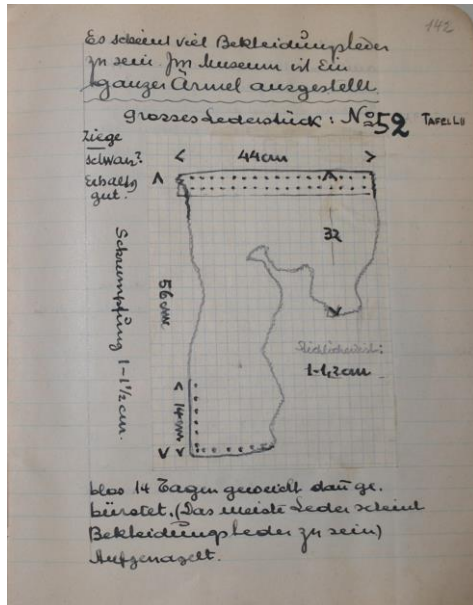 142
Es scheint viel Bekleidungsleder
zu sein. Im Museum ist Ein
ganzer Ärmel ausgestellt.
grosses Lederstück: No 52 TAFEL LII
Ziege
schwarz?
Erhaltg
gut.
44cm
32
56cm
Schrumpfung 1-1½ cm.
14cm
1-1,2cm
blos 14 Tagen geweicht dan ge.
bürstet. (Das meiste Leder scheint
Bekleidungsleder zu sein)
Aufgenagelt.